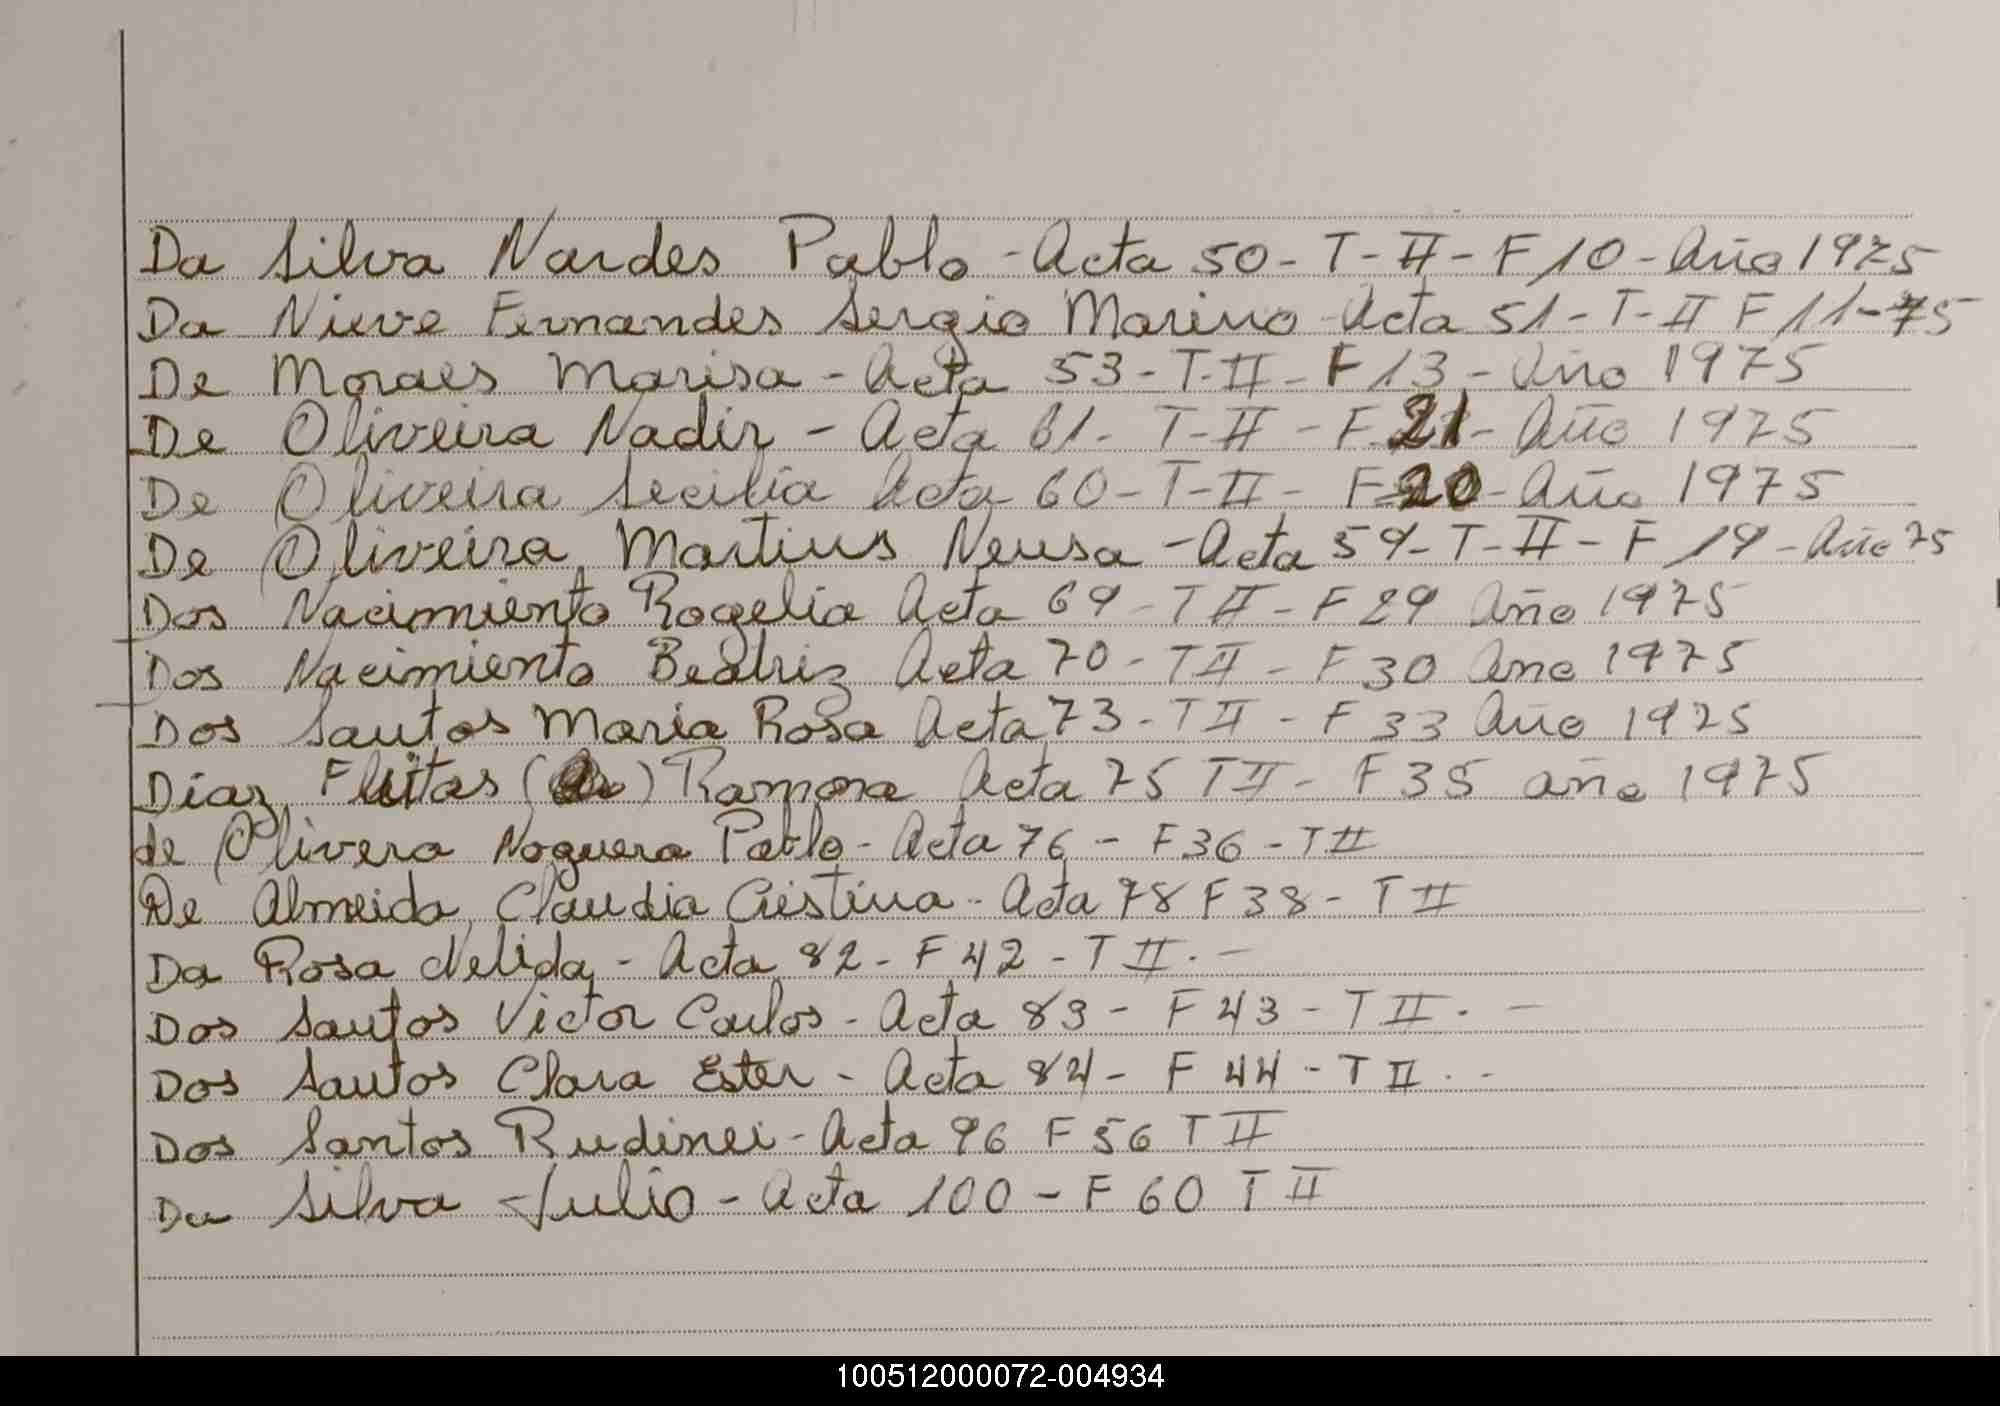 Da Silva Nardes Pablo - Acta 50 - T - II - F 10 - Año 1975
Da Nieve Fernandes Sergio Marino Acta 51 - T - II F 11 - 75
De Moraes Marisa - Acta 53 - T - II - F 13 - Año 1975
De Oliveira Nadir - Acta 61 - T - II - F 21 - Año 1975
De Oliveira Secilia Acta 60 - T - II - F 20 - Año 1975
De Oliveira Martins Neusa - Acta 59 - T - II - F 19 - Año 75
Dos Nacimiento Rogelia Acta 69 - T II - F 29 Año 1975
Dos Nacimiento Beatriz Acta 70 - T II - F 30 Año 1975
Dos Santos Maria Rosa Acta 73 - T II - F 33 Año 1975
Diaz Fleitas ( ) Ramona Acta 75 T II - F 35 año 1975
de Olivera Noguera Pablo - Acta 76 - F 36 - T II
De Almeida Claudia Cristina - Acta 78 F 38 - T II
Da Rosa Nelida - Acta 82 - F 42 - T II. -
Dos Santos Victor Carlos - Acta 83 - F 43 - T II. -
Dos Santos Clara Ester - Acta 84 - F 44 - T II. -
Dos Santos Rudinei - Acta 96 F 56 T II
Da Silva Julio - Acta 100 - F 60 T II
100512000072-004934